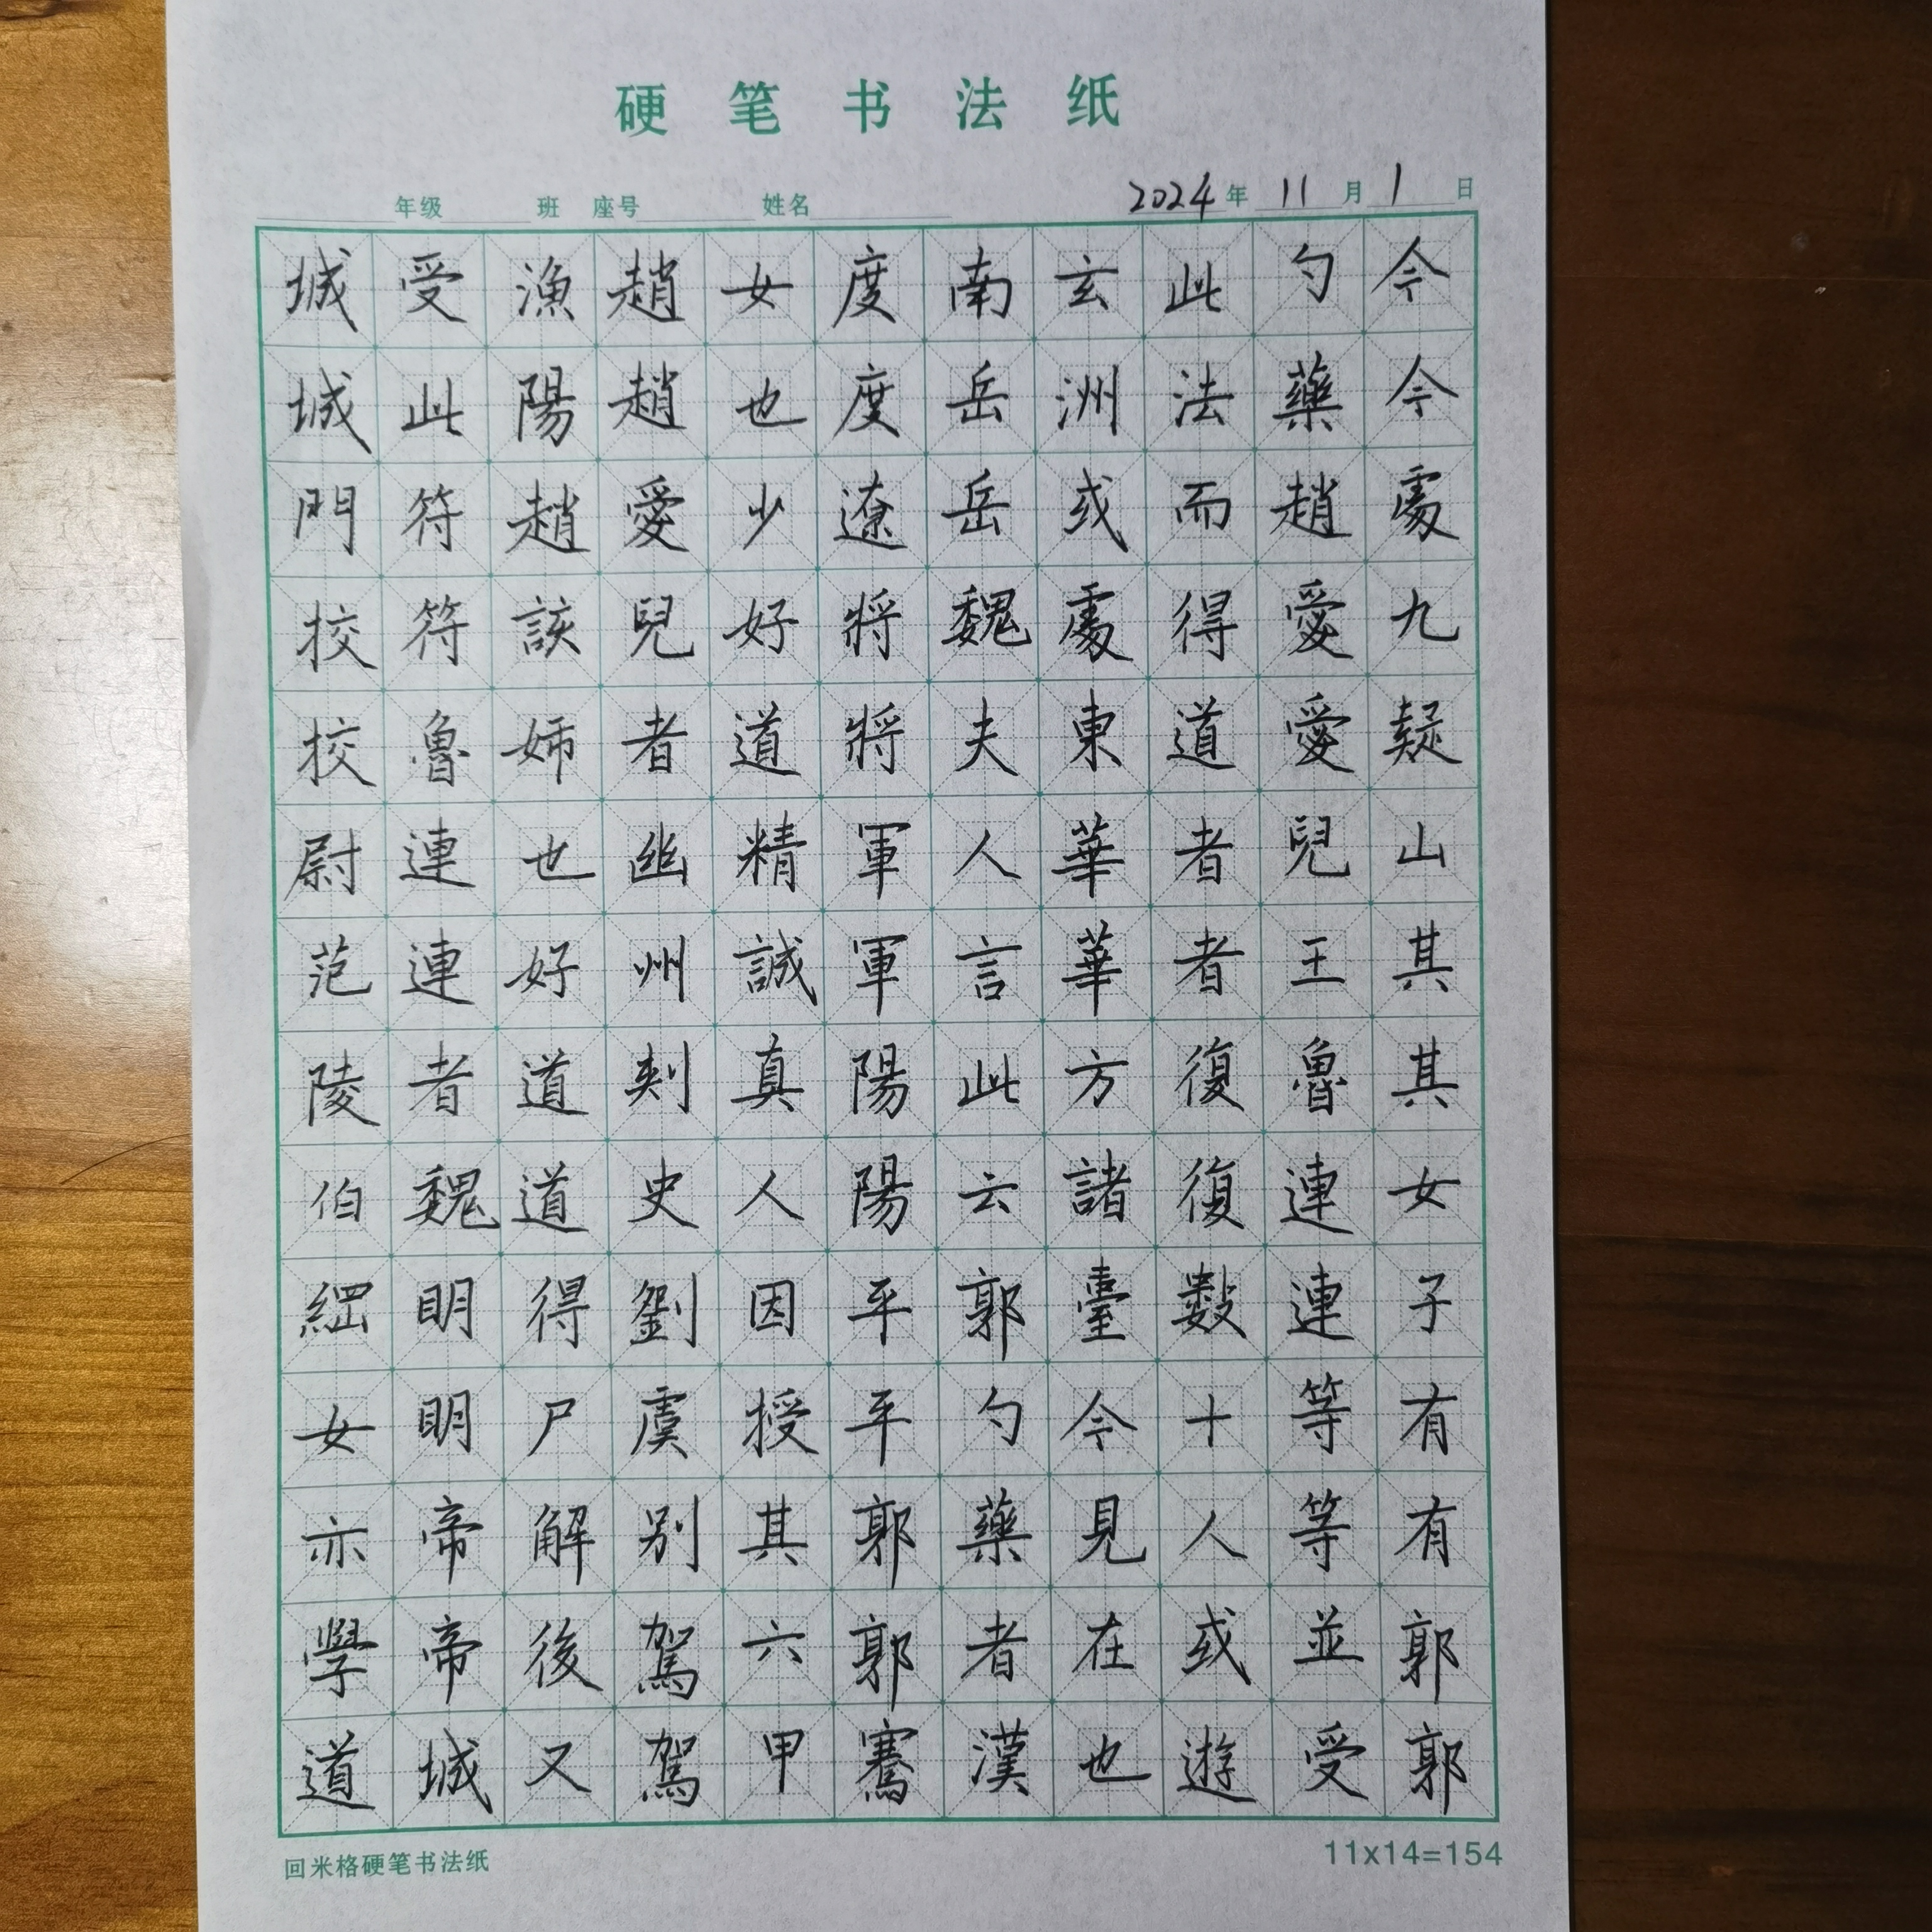 硬笔书法纸
年级 班 座号 姓名 2024年11月1日
今今處九疑山其其女子有有郭郭
勺藥趙愛愛兒王魯連連等等並受
此法而得道者者復復數十人或遊
玄洲或處東華華方諸臺今見在也
南岳岳魏夫人言此云郭勺藥者漢
度度遼將將軍軍陽陽平平郭郭騫
女也少好道精誠真人因授其六甲
趙趙愛兒者幽州刾史劉虞别駕駕
漁陽趙該姊也好道道得尸解後又
受此符符魯連連者魏眀眀帝帝城
城城門挍挍尉范陵伯女亦學道
回米格硬笔书法纸 11x14=154